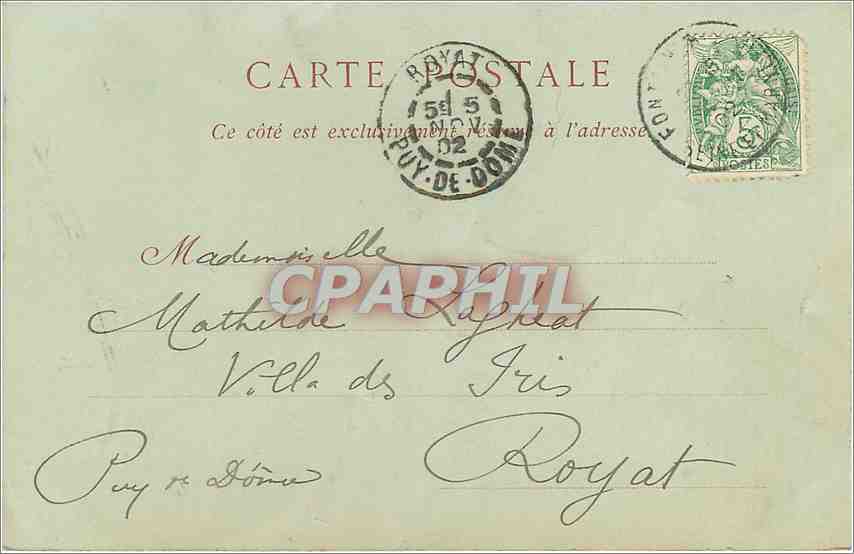 CARTE POSTALE
Ce côté est exclusivement réservé à l'adresse
ROYAT
5E 5
NOV
02
PUY-DE-DOM
5
POSTES
Mademoiselle
CPAPHIL
Mathilde
Villa des Iris
Royat
Puy de Dôme